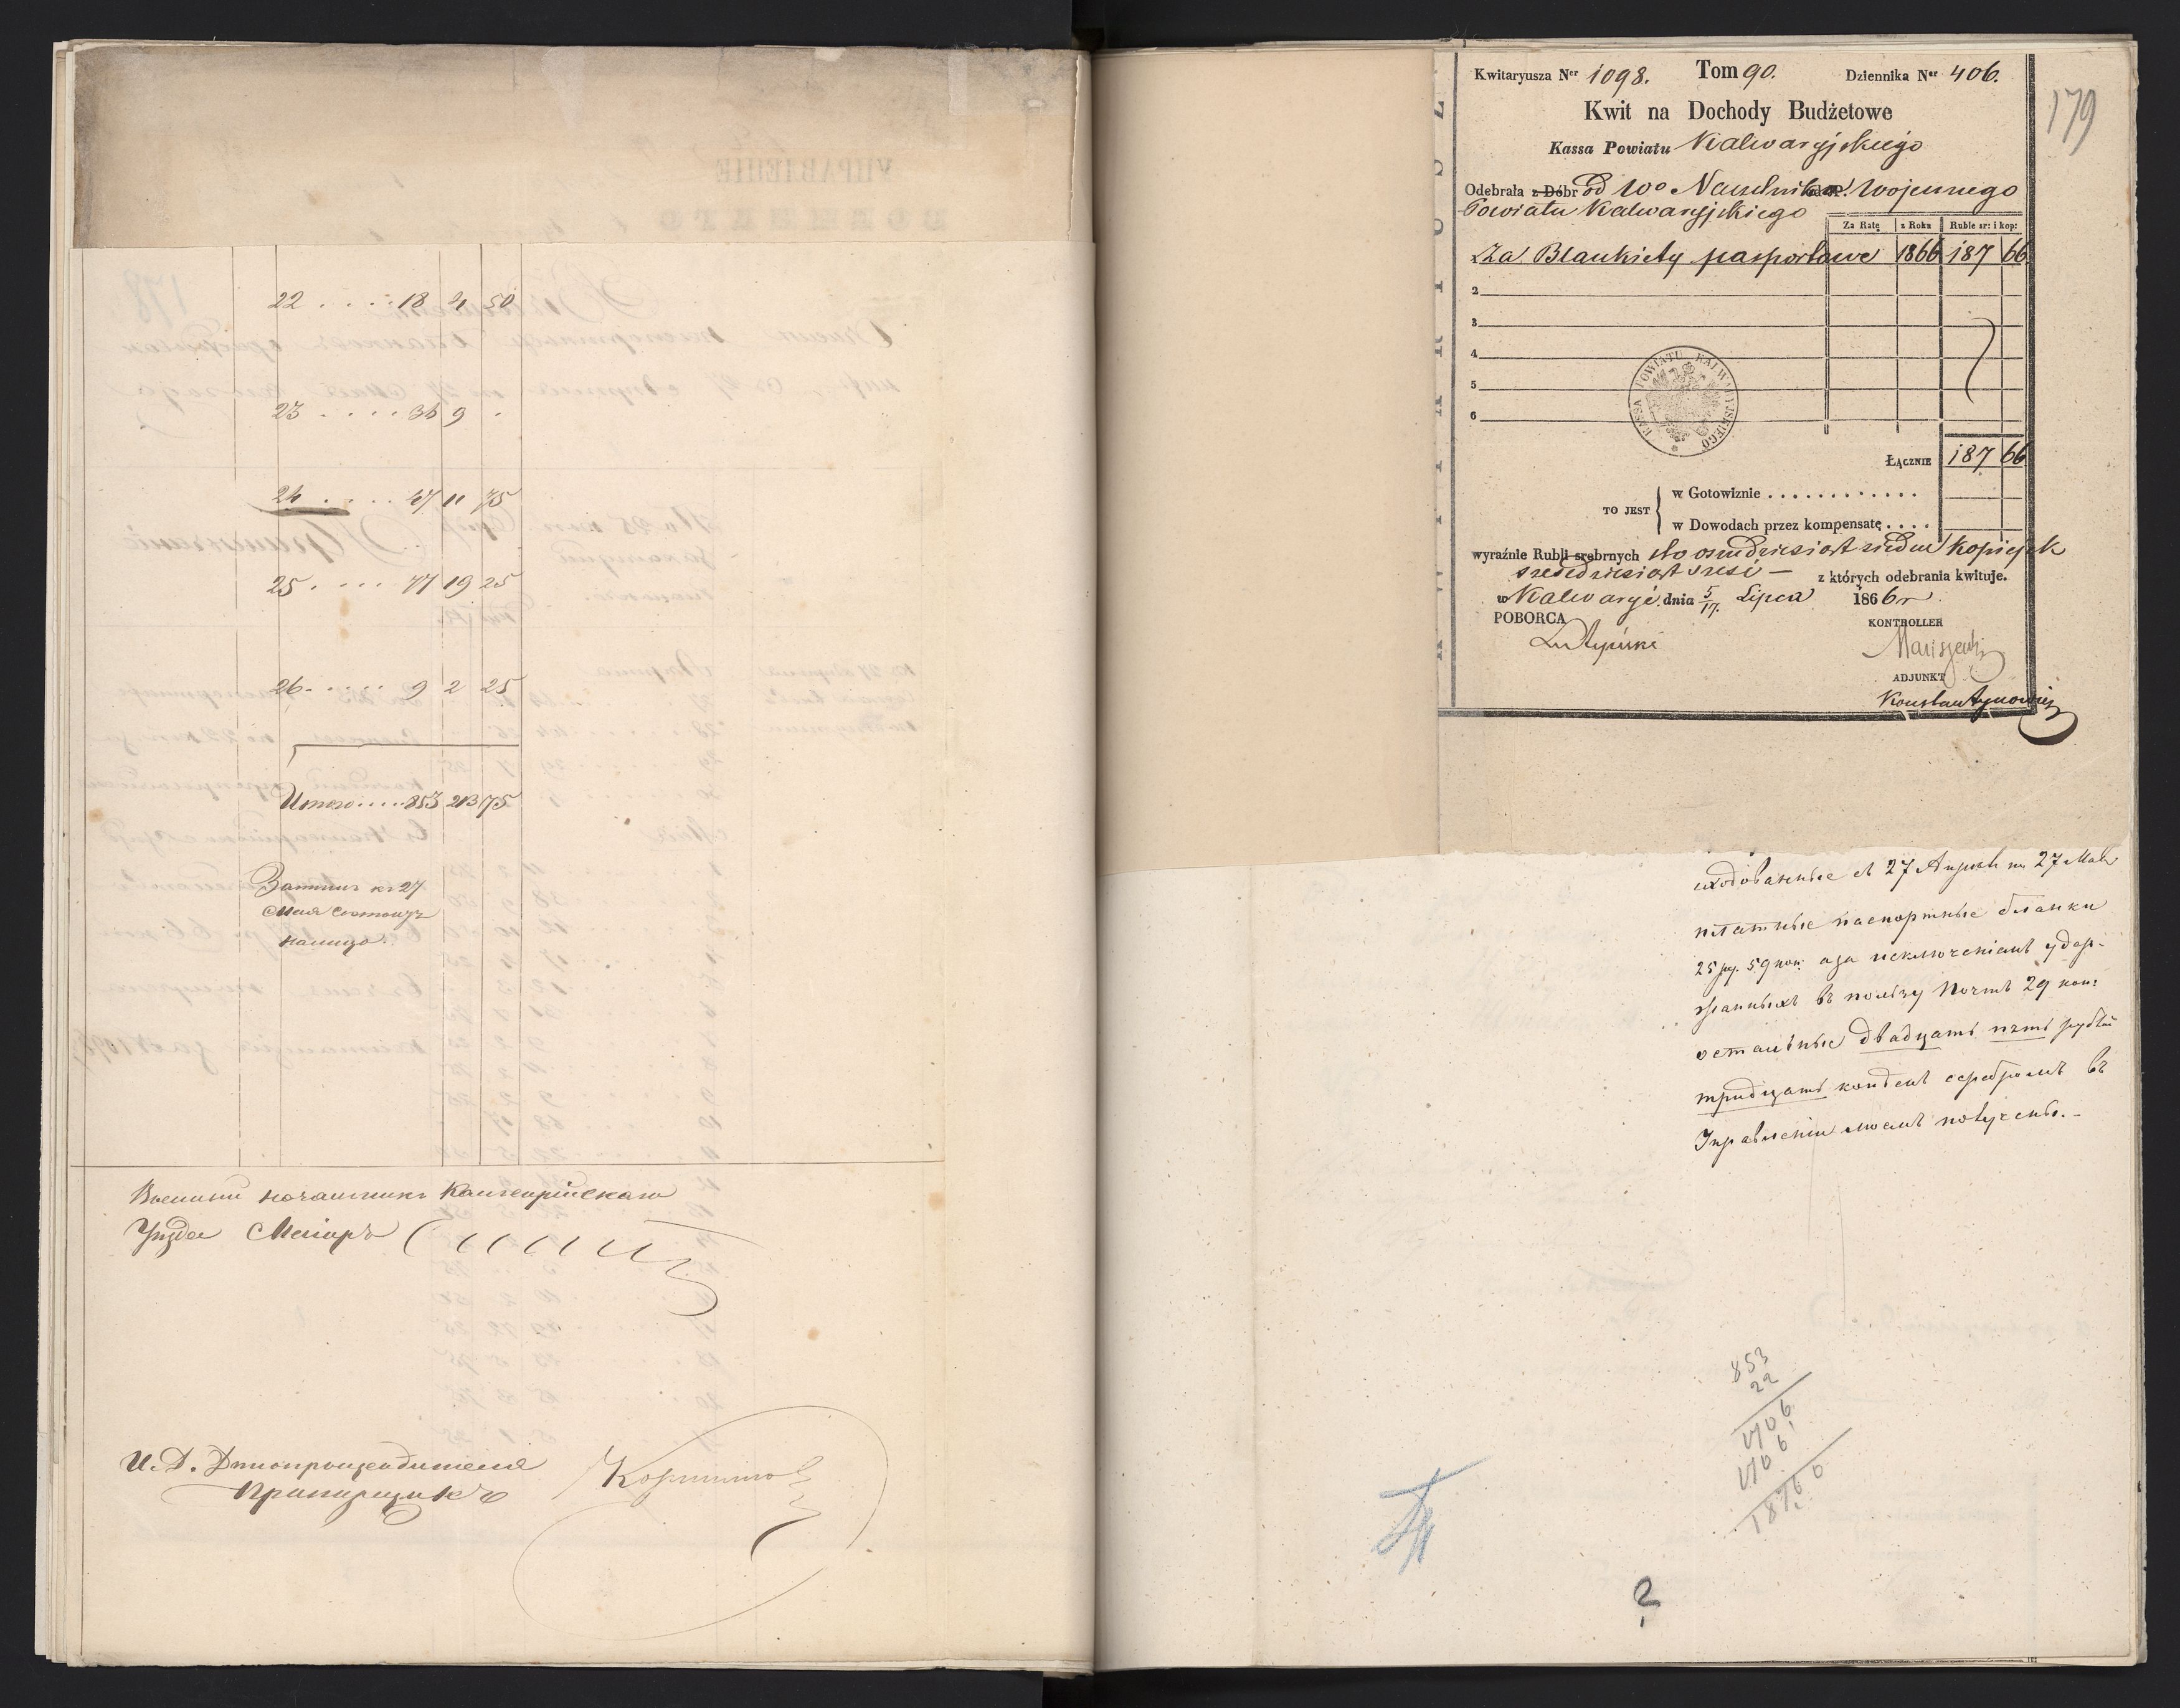 22 . . . . 18 4 50
23 . . . . 36 9 .
24 . . . . 47 11 75
25 . . . . 77 19 25
26 . . . . 9 2 25
Итого . . . . 853 213 75
Затѣмъ къ 27
Мая состоитъ
налицо.
Военный начальникъ Кальварійскаго
Уѣзда Маіоръ
И. Д. Дѣлопроизводителя
Прапорщикъ
Kwitaryusza Ner 1098. Tom 90. Dziennika Ner 406.
179
Kwit na Dochody Budżetowe
Kassa Powiatu Kalwaryjskiego
Odebrała z Dóbr od Wo Naczelnika Wojennego
Powiatu Kalwaryjskiego
Za Ratę z Roku Ruble sr: i kop:
Za Blankiety pasportowe 1866 187 66
2
3
4
5
6
KASSA POWIATU KALWARYJSKIEGO
ŁĄCZNIE 187 66
TO JEST
w Gotowiznie . . . . . . . . . . . .
w Dowodach przez kompensatę . . . .
wyraźnie Rubli srebrnych sto ośmdziesiąt siedm kopiejek
sześćdziesiąt sześć — z których odebrania kwituje.
w Kalwaryi dnia 5/17. Lipca 1866 r
POBORCA KONTROLLER
ADJUNKT
Konstantynowicz
съ 27 Апрѣля по 27 Мая
платные паспортные бланки
25 ру. 59 коп. а за исключеніемъ удер-
жанныхъ въ пользу Почтъ 29 коп:
остальные двадцать пять рублей
тридцать копѣекъ серебромъ въ
Управленіи моемъ получены.-
853
22
1706
1706
18766
?